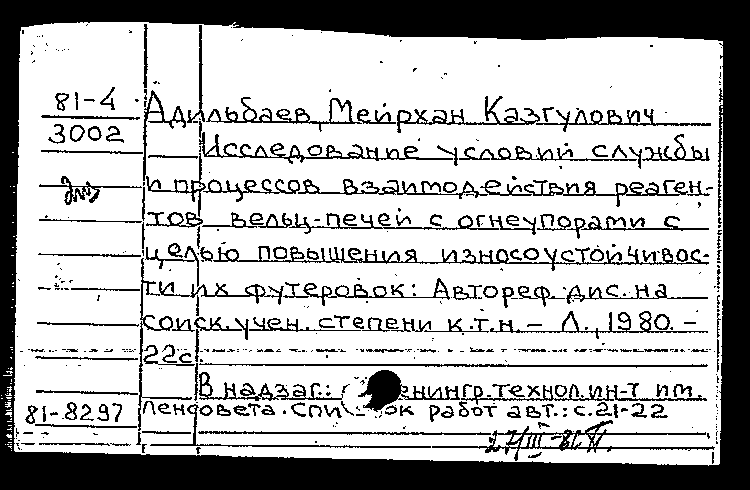 81-4 Адильбаев, Мейрхан Казгулович
3002 Исследование условий службы
и процессов взаимодействия реаген-
тов вельц-печей с огнеупорами с
целью повышения износоустойчивос-
ти их футеровок: Автореф. дис. на
соиск. учен. степени к.т.н. – Л., 1980. –
22с.
В надзаг.: енингр. технол. ин-т им.
81-8297 Ленсовета. Спи ок работ авт.: с. 21-22
27/III-81